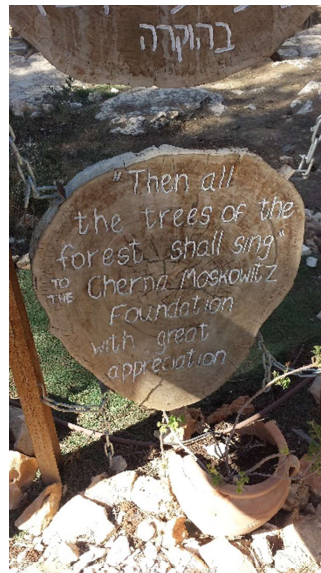 בהוקרה
"Then all
the trees of the
forest shall sing"
TO THE Cherna Moskowitz
Foundation
with great
appreciation